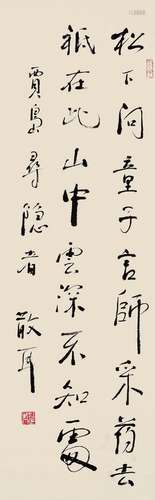 松下问童子言師采药去
祇在此山中雲深不知處
賈島尋隱者 散耳